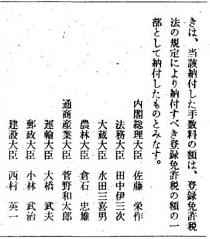 きは、当該納付した手数料の額は、登録免許税
法の規定により納付すべき登録免許税の額の一
部として納付したものとみなす。
内閣総理大臣 佐藤 栄作
法務大臣 田中伊三次
大蔵大臣 水田三喜男
農林大臣 倉石 忠雄
通商産業大臣 菅野和太郎
運輸大臣 大橋 武夫
郵政大臣 小林 武治
建設大臣 西村 英一